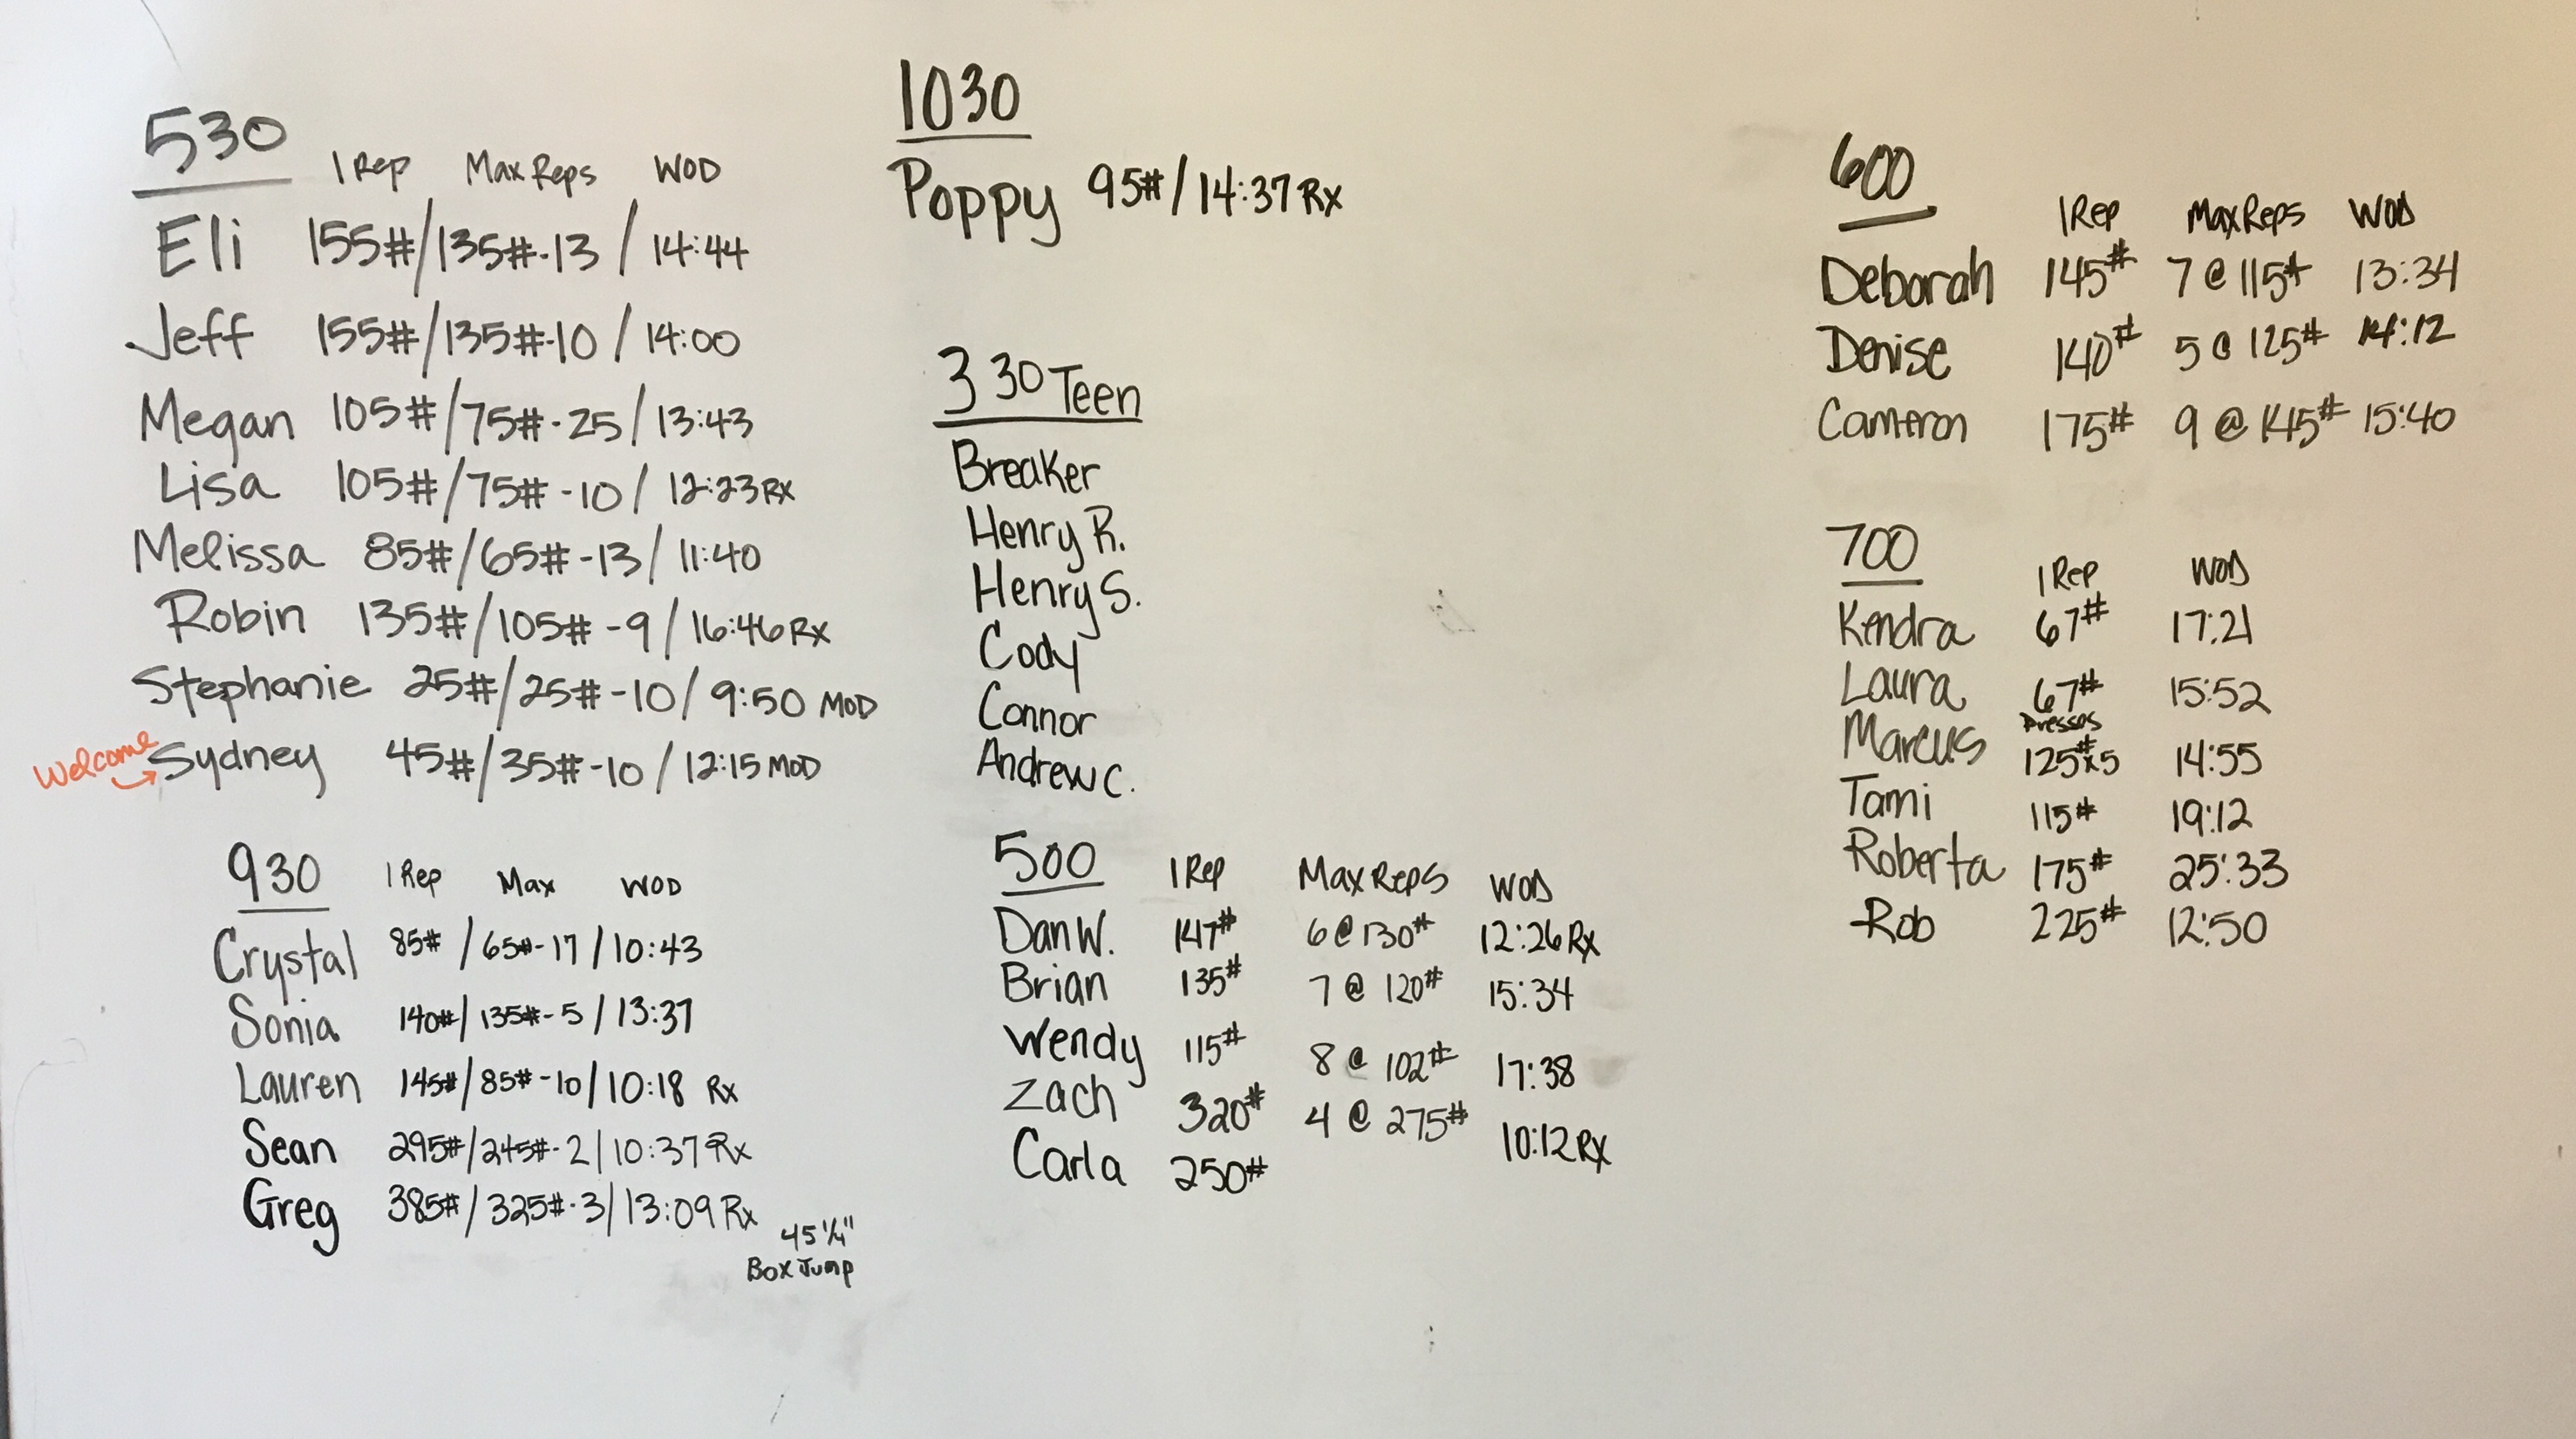 530
1 Rep Max Reps WOD
Eli 155#/135#-13 / 14:44
Jeff 155#/135#-10 / 14:00
Megan 105#/75#-25 / 13:43
Lisa 105#/75#-10 / 12:23 Rx
Melissa 85#/65#-13 / 11:40
Robin 135#/105#-9 / 16:46 Rx
Stephanie 25#/25#-10 / 9:50 MOD
Welcome Sydney 45#/35#-10 / 12:15 MOD
930 1 Rep Max WOD
Crystal 85# / 65#-17 / 10:43
Sonia 140#/ 135#-5 / 13:37
Lauren 145#/ 85#-10/ 10:18 Rx
Sean 295#/245#-2 | 10:37 Rx
Greg 385#/ 325#-3/ 13:09 Rx
45 1/4"
Box Jump
1030
Poppy 95#/ 14:37 Rx
330 Teen
Breaker
Henry R.
Henry S.
Cody
Connor
Andrew C.
500 1 Rep Max Reps WOD
Dan W. 147# 6 @ 130# 12:26 Rx
Brian 135# 7 @ 120# 15:34
Wendy 115# 8 @ 102# 17:38
Zach 320# 4 @ 275# 10:12 Rx
Carla 250#
600
1 Rep Max Reps WOD
Deborah 145# 7 @ 115# 13:34
Denise 140# 5 @ 125# 14:12
Cameron 175# 9 @ 145# 15:40
700
1 Rep WOD
Kendra 67# 17:21
Laura 67# 15:52
Presses
Marcus 125#x5 14:55
Tami 115# 19:12
Roberta 175# 25:33
Rob 225# 12:50